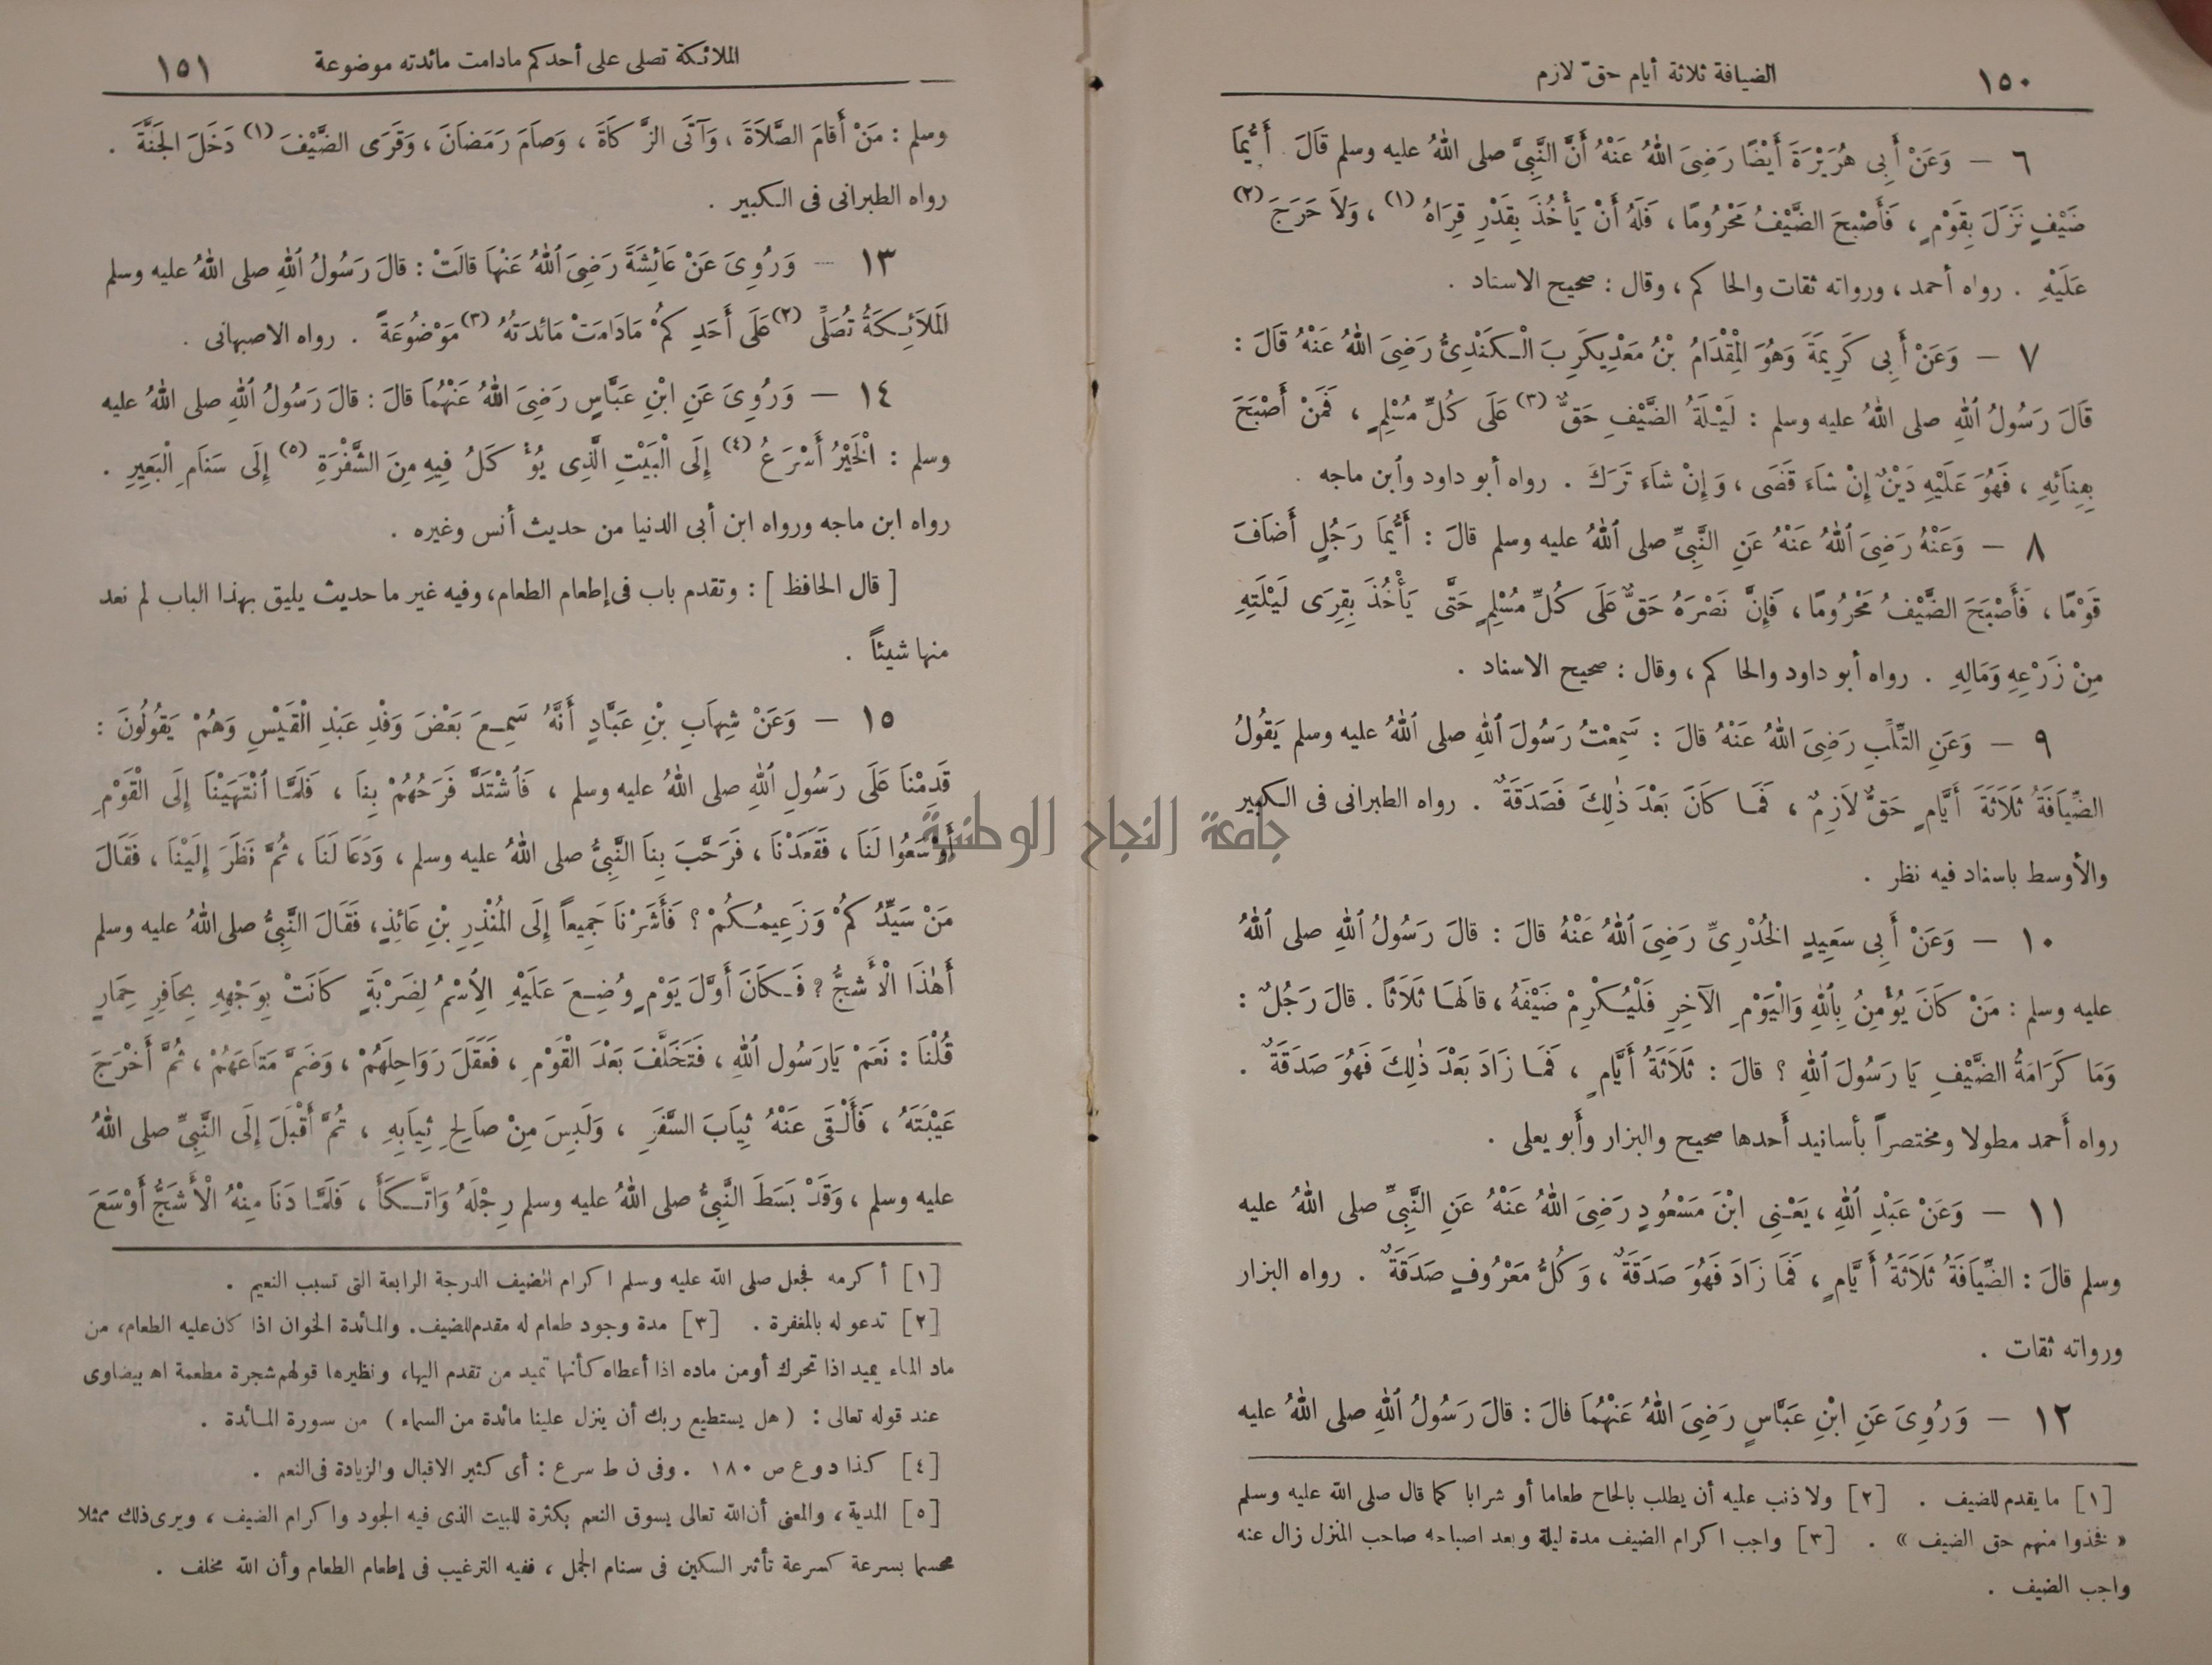 ١٥٠ الضيافة ثلاثة أيام حقّ لازم
٦ — وَعَنْ أَبِى هُرَيْرَةَ أَيْضًا رَضِىَ اللهُ عَنْهُ أَنَّ النَّبِىَّ صلى اللهُ عليه وسلم قَالَ : أَيُّمَا
ضَيْفٍ نَزَلَ بِقَوْمٍ ، فَأَصْبَحَ الضَّيْفُ مَحْرُومًا ، فَلَهُ أَنْ يَأْخُذَ بِقَدْرِ قِرَاهُ (١) ، وَلاَ حَرَجَ (٢)
عَلَيْهِ . رواه أحمد ، ورواته ثقات والحاكم ، وقال : صحيح الاسناد .
٧ — وَعَنْ أَبِى كَرِيمَةَ وَهُوَ الْمِقْدَامُ بْنُ مَعْدِيكَرِبَ الْكَنْدِىُّ رَضِىَ اللهُ عَنْهُ قَالَ :
قَالَ رَسُولُ اللهِ صلى اللهُ عليه وسلم : لَيْلَةُ الضَّيْفِ حَقٌّ (٣) عَلَى كُلِّ مُسْلِمٍ ، فَمَنْ أَصْبَحَ
بِفِنَائِهِ ، فَهُوَ عَلَيْهِ دَيْنٌ إِنْ شَاءَ قَضَى ، وَإِنْ شَاءَ تَرَكَ . رواه أبو داود وابن ماجه .
٨ — وَعَنْهُ رَضِىَ اللهُ عَنْهُ عَنِ النَّبِىِّ صلى اللهُ عليه وسلم قالَ : أَيُّمَا رَجُلٍ أَضَافَ
قَوْمًا ، فَأَصْبَحَ الضَّيْفُ مَحْرُومًا ، فَإِنَّ نَصْرَهُ حَقٌّ عَلَى كُلِّ مُسْلِمٍ حَتَّى يَأْخُذَ بِقِرَى لَيْلَتِهِ
مِنْ زَرْعِهِ وَمَالِهِ . رواه أبو داود والحاكم ، وقال : صحيح الاسناد .
٩ — وَعَنِ التِّلِبِّ رَضِىَ اللهُ عَنْهُ قالَ : سَمِعْتُ رَسُولَ اللهِ صلى اللهُ عليه وسلم يَقُولُ
الضِّيَافَةُ ثَلَاثَةَ أَيَّامٍ حَقٌّ لاَزِمٌ ، فَمَا كَانَ بَعْدَ ذٰلِكَ فَصَدَقَةٌ . رواه الطبرانى فى الكبير
والأوسط باسناد فيه نظر .
١٠ — وَعَنْ أَبِى سَعِيدٍ الْخُدْرِىِّ رَضِىَ اللهُ عَنْهُ قالَ : قالَ رَسُولُ اللهِ صلى اللهُ
عليه وسلم : مَنْ كَانَ يُؤْمِنُ بِاللهِ وَالْيَوْمِ الآخِرِ فَلْيُكْرِمْ ضَيْفَهُ ، قالَهَا ثَلاَثًا . قالَ رَجُلٌ :
وَمَا كَرَامَةُ الضَّيْفِ يَا رَسُولَ اللهِ ؟ قالَ : ثَلَاثَةُ أَيَّامٍ ، فَمَا زَادَ بَعْدَ ذٰلِكَ فَهُوَ صَدَقَةٌ .
رواه أحمد مطولا ومختصراً بأسانيد أحدها صحيح والبزار وأبو يعلى .
١١ — وَعَنْ عَبْدِ اللهِ ، يَعْنِى ابْنَ مَسْعُودٍ رَضِىَ اللهُ عَنْهُ عَنِ النَّبِىِّ صلى اللهُ عليه
وسلم قالَ : الضِّيَافَةُ ثَلَاثَةُ أَيَّامٍ ، فَمَا زَادَ فَهُوَ صَدَقَةٌ ، وَكُلُّ مَعْرُوفٍ صَدَقَةٌ . رواه البزار
ورواته ثقات .
١٢ — وَرُوِىَ عَنِ ابْنِ عَبَّاسٍ رَضِىَ اللهُ عَنْهُمَا قالَ : قالَ رَسُولُ اللهِ صلى اللهُ عليه
[١] ما يقدم للضيف . [٢] ولا ذنب عليه أن يطلب بالحاح طعاما أو شرابا كما قال صلى الله عليه وسلم
« فخذوا منهم حق الضيف » . [٣] واجب اكرام الضيف مدة ليلة وبعد اصباحه صاحب المنزل زال عنه
واجب الضيف .
الملائكة تصلى على أحدكم مادامت مائدته موضوعة ١٥١
وسلم : مَنْ أَقَامَ الصَّلاَةَ ، وَآتَى الزَّكَاةَ ، وَصَامَ رَمَضَانَ ، وَقَرَى الضَّيْفَ (١) دَخَلَ الْجَنَّةَ .
رواه الطبرانى فى الكبير .
١٣ — وَرُوِىَ عَنْ عَائِشَةَ رَضِىَ اللهُ عَنْهَا قالَتْ : قالَ رَسُولُ اللهِ صلى اللهُ عليه وسلم
الْمَلاَئِكَةُ تُصَلِّى (٢) عَلَى أَحَدِكُمْ مَادَامَتْ مَائِدَتُهُ (٣) مَوْضُوعَةً . رواه الاصبهانى .
١٤ — وَرُوِىَ عَنِ ابْنِ عَبَّاسٍ رَضِىَ اللهُ عَنْهُمَا قالَ : قالَ رَسُولُ اللهِ صلى اللهُ عليه
وسلم : الْخَيْرُ أَسْرَعُ (٤) إِلَى الْبَيْتِ الَّذِى يُؤْكَلُ فِيهِ مِنَ الشَّفْرَةِ (٥) إِلَى سَنَامِ الْبَعِيرِ .
رواه ابن ماجه ورواه ابن أبى الدنيا من حديث أنس وغيره .
[ قال الحافظ ] : وتقدم باب فى إطعام الطعام ، وفيه غير ما حديث يليق بهذا الباب لم نعد
منها شيئاً .
١٥ — وَعَنْ شِهَابِ بْنِ عَبَّادٍ أَنَّهُ سَمِعَ بَعْضَ وَفْدِ عَبْدِ الْقَيْسِ وَهُمْ يَقُولُونَ :
قَدِمْنَا عَلَى رَسُولِ اللهِ صلى اللهُ عليه وسلم ، فَاشْتَدَّ فَرَحُهُمْ بِنَا ، فَلَمَّا انْتَهَيْنَا إِلَى الْقَوْمِ
أَوْسَعُوا لَنَا ، فَقَعَدْنَا ، فَرَحَّبَ بِنَا النَّبِىُّ صلى اللهُ عليه وسلم ، وَدَعَا لَنَا ، ثُمَّ نَظَرَ إِلَيْنَا ، فَقَالَ
مَنْ سَيِّدُكُمْ وَزَعِيمُكُمْ ؟ فَأَشَرْنَا جَمِيعاً إِلَى الْمُنْذِرِ بْنِ عَائِذٍ ، فَقَالَ النَّبِىُّ صلى اللهُ عليه وسلم
أَهٰذَا الْأَشَجُّ ؟ فَكَانَ أَوَّلَ يَوْمٍ وُضِعَ عَلَيْهِ الِاسْمُ لِضَرْبَةٍ كَانَتْ بِوَجْهِهِ بِحَافِرِ حِمَارٍ
قُلْنَا : نَعَمْ يَارَسُولَ اللهِ ، فَتَخَلَّفَ بَعْدَ الْقَوْمِ ، فَعَقَلَ رَوَاحِلَهُمْ ، وَضَمَّ مَتَاعَهُمْ ، ثُمَّ أَخْرَجَ
عَيْبَتَهُ ، فَأَلْقَى عَنْهُ ثِيَابَ السَّفَرِ ، وَلَبِسَ مِنْ صَالِحِ ثِيَابِهِ ، ثُمَّ أَقْبَلَ إِلَى النَّبِىِّ صلى اللهُ
عليه وسلم ، وَقَدْ بَسَطَ النَّبِىُّ صلى اللهُ عليه وسلم رِجْلَهُ وَاتَّكَأَ ، فَلَمَّا دَنَا مِنْهُ الْأَشَجُّ أَوْسَعَ
[١] أكرمه فجعل صلى الله عليه وسلم اكرام الضيف الدرجة الرابعة التى تسبب النعيم .
[٢] تدعو له بالمغفرة . [٣] مدة وجود طعام له مقدم للضيف . والمائدة الخوان اذا كان عليه الطعام ، من
ماد الماء يميد اذا تحرك أومن ماده اذا أعطاه كأنها تميد من تقدم اليها ، ونظيرها قولهم شجرة مطعمة اه بيضاوى
عند قوله تعالى : ( هل يستطيع ربك أن ينزل علينا مائدة من السماء ) من سورة المائدة .
[٤] كذا د وع ص ١٨٠ . وفى ن ط سرع : أى كثير الاقبال والزيادة فى النعم .
[٥] المدية ، والمعنى أن الله تعالى يسوق النعم بكثرة للبيت الذى فيه الجود واكرام الضيف ، ويرى ذلك ممثلا
محسما بسرعة كسرعة تأثير السكين فى سنام الجمل ، ففيه الترغيب فى إطعام الطعام وأن الله مخلف .
جامعة النجاح الوطنية